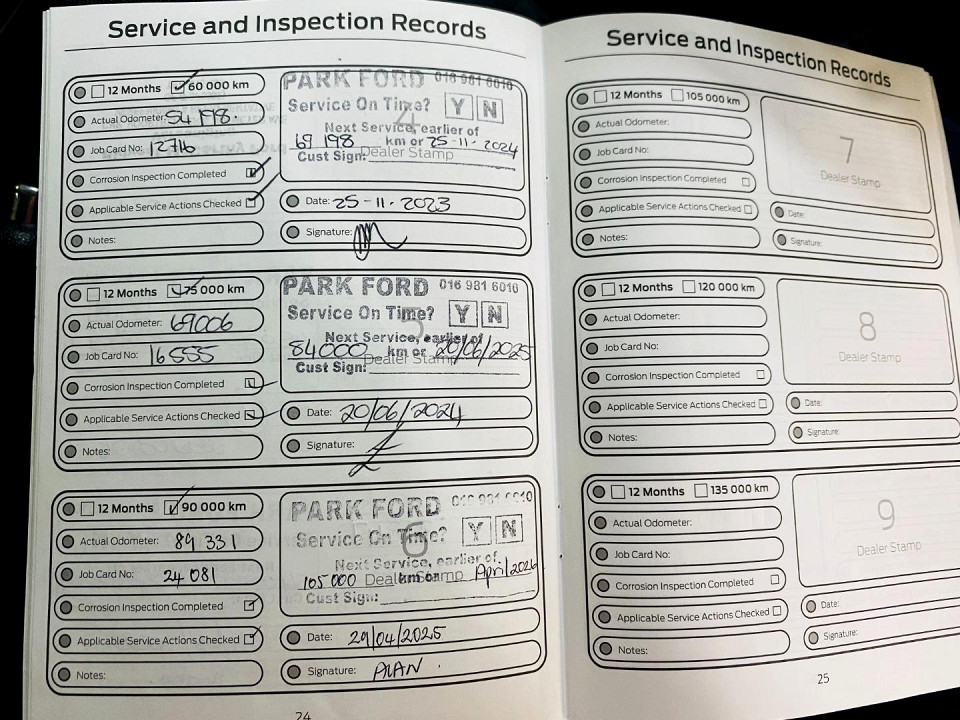 Service and Inspection Records
12 Months 60 000 km
Actual Odometer: 54 198.
Job Card No: 12716
Corrosion Inspection Completed
Applicable Service Actions Checked
Notes:
PARK FORD 016 981 6010
Service On Time? Y N
4
Next Service, earlier of
69 198 km or 25-11-2024
Dealer Stamp
Cust Sign:
Date: 25-11-2023
Signature:
12 Months 75 000 km
Actual Odometer: 69006
Job Card No: 16555
Corrosion Inspection Completed
Applicable Service Actions Checked
Notes:
PARK FORD 016 981 6010
Service On Time? Y N
5
Next Service, earlier of
84000 km or 20/06/2025
Dealer Stamp
Cust Sign:
Date: 20/06/2024
Signature:
12 Months 90 000 km
Actual Odometer: 89 331
Job Card No: 24 081
Corrosion Inspection Completed
Applicable Service Actions Checked
Notes:
PARK FORD 016 981 6010
Service On Time? Y N
6
Next Service, earlier of
105 000 km or April 2026
Dealer Stamp
Cust Sign:
Date: 29/04/2025
Signature: ALAN.
24
Service and Inspection Records
12 Months 105 000 km
Actual Odometer:
Job Card No:
Corrosion Inspection Completed
Applicable Service Actions Checked
Notes:
7
Dealer Stamp
Date:
Signature:
12 Months 120 000 km
Actual Odometer:
Job Card No:
Corrosion Inspection Completed
Applicable Service Actions Checked
Notes:
8
Dealer Stamp
Date:
Signature:
12 Months 135 000 km
Actual Odometer:
Job Card No:
Corrosion Inspection Completed
Applicable Service Actions Checked
Notes:
9
Dealer Stamp
Date:
Signature:
25